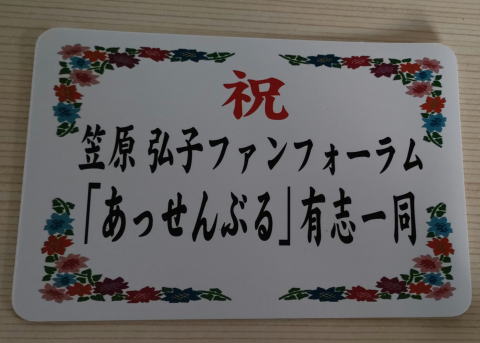 祝
笠原 弘子ファンフォーラム
「あっせんぶる」有志一同